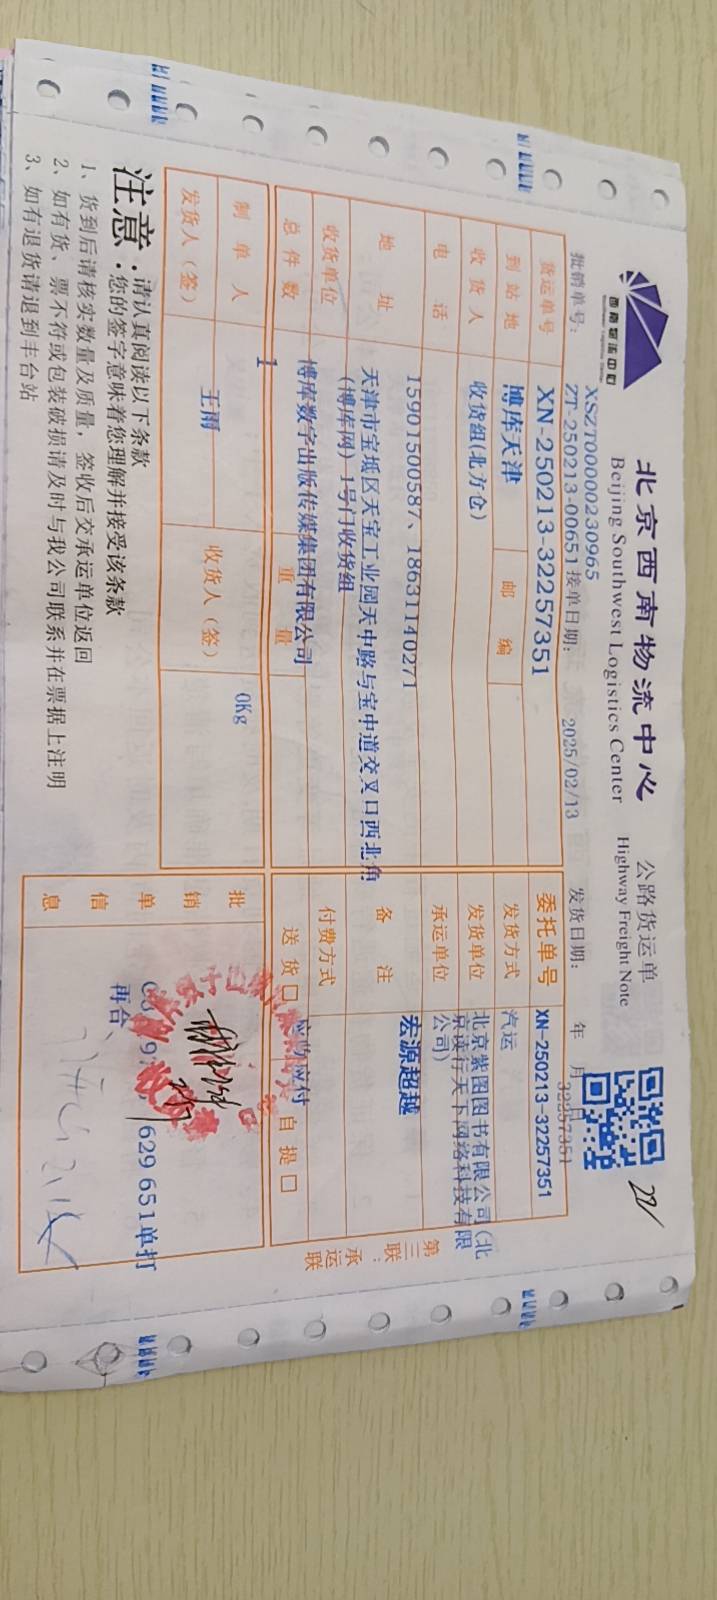 西南物流中心
北京西南物流中心 公路货运单
Beijing Southwest Logistics Center Highway Freight Note
XSZT00000230965
批销单号: ZT-250213-00651 接单日期: 2025/02/13 发货日期: 年 月 日
32257351
货运单号 XN-250213-32257351 委托单号 XN-250213-37257351
到站地 博库天津 邮编 发货方式 汽运
收货人 收货组(北方仓) 发货单位 北京紫图图书有限公司(北
京读行天下网络科技有限
公司)
电话 15901500587、18631140271 承运单位 宏源超越
地址 天津市宝坻区天宝工业园天中路与宝中道交叉口西北角 备注
(博库网) 1号门收货组
收货单位 博库数字出版传媒集团有限公司 付费方式 应购应付
总件数 1 重量 0Kg 送货□ 自提□
制单人 王雨 收货人(签)
发货人(签)
批销单信息 629 651单打
再合
第三联:承运联
注意: 请认真阅读以下条款
您的签字意味着您理解并接受该条款
1、货到后请核实数量及质量，签收后交承运单位返回
2、如有货、票不符或包装破损请及时与我公司联系并在票据上注明
3、如有退货请退到丰台站